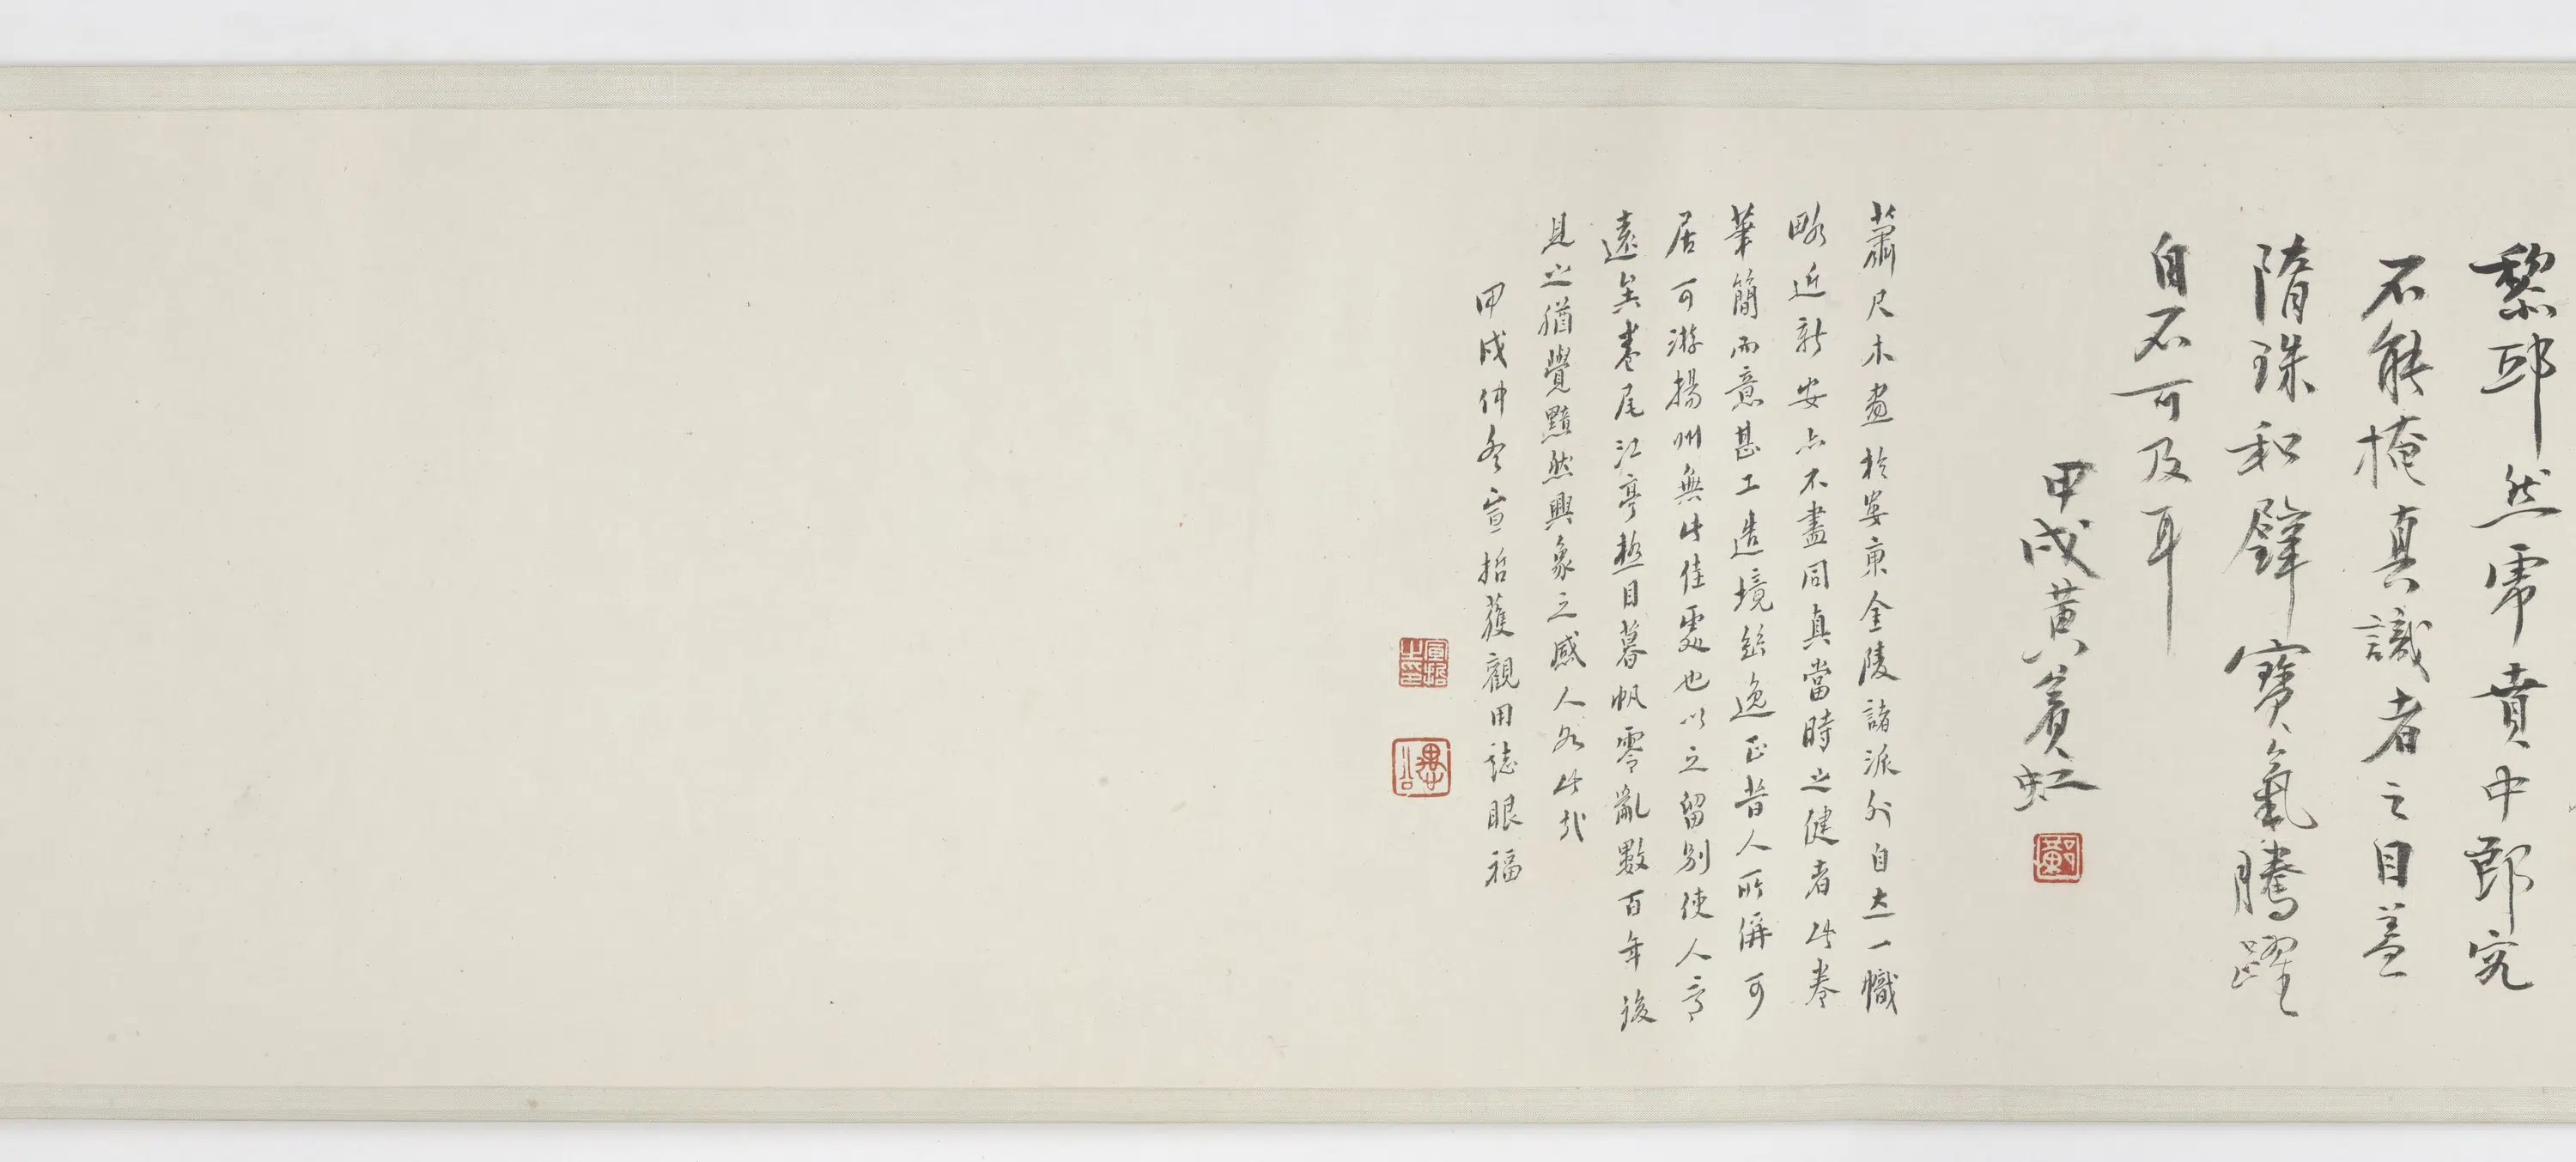 黎邱然常賁中郎究
不能掩真識者之目蓋
隋珠和璧寶氣騰躍
自不可及耳
甲戌黃賓虹
蕭尺木畫於婁東金陵諸派外自立一幟
略近新安亦不盡同真當時之健者此卷
筆簡而意甚工造境絕逸正昔人所稱可
居可游揚州無此佳處也以之留別使人意
遠矣卷尾江亭愁目暮帆零亂數百年後
見之猶覺黯然興象之感人如此哉
甲戌仲冬宣哲獲觀用誌眼福